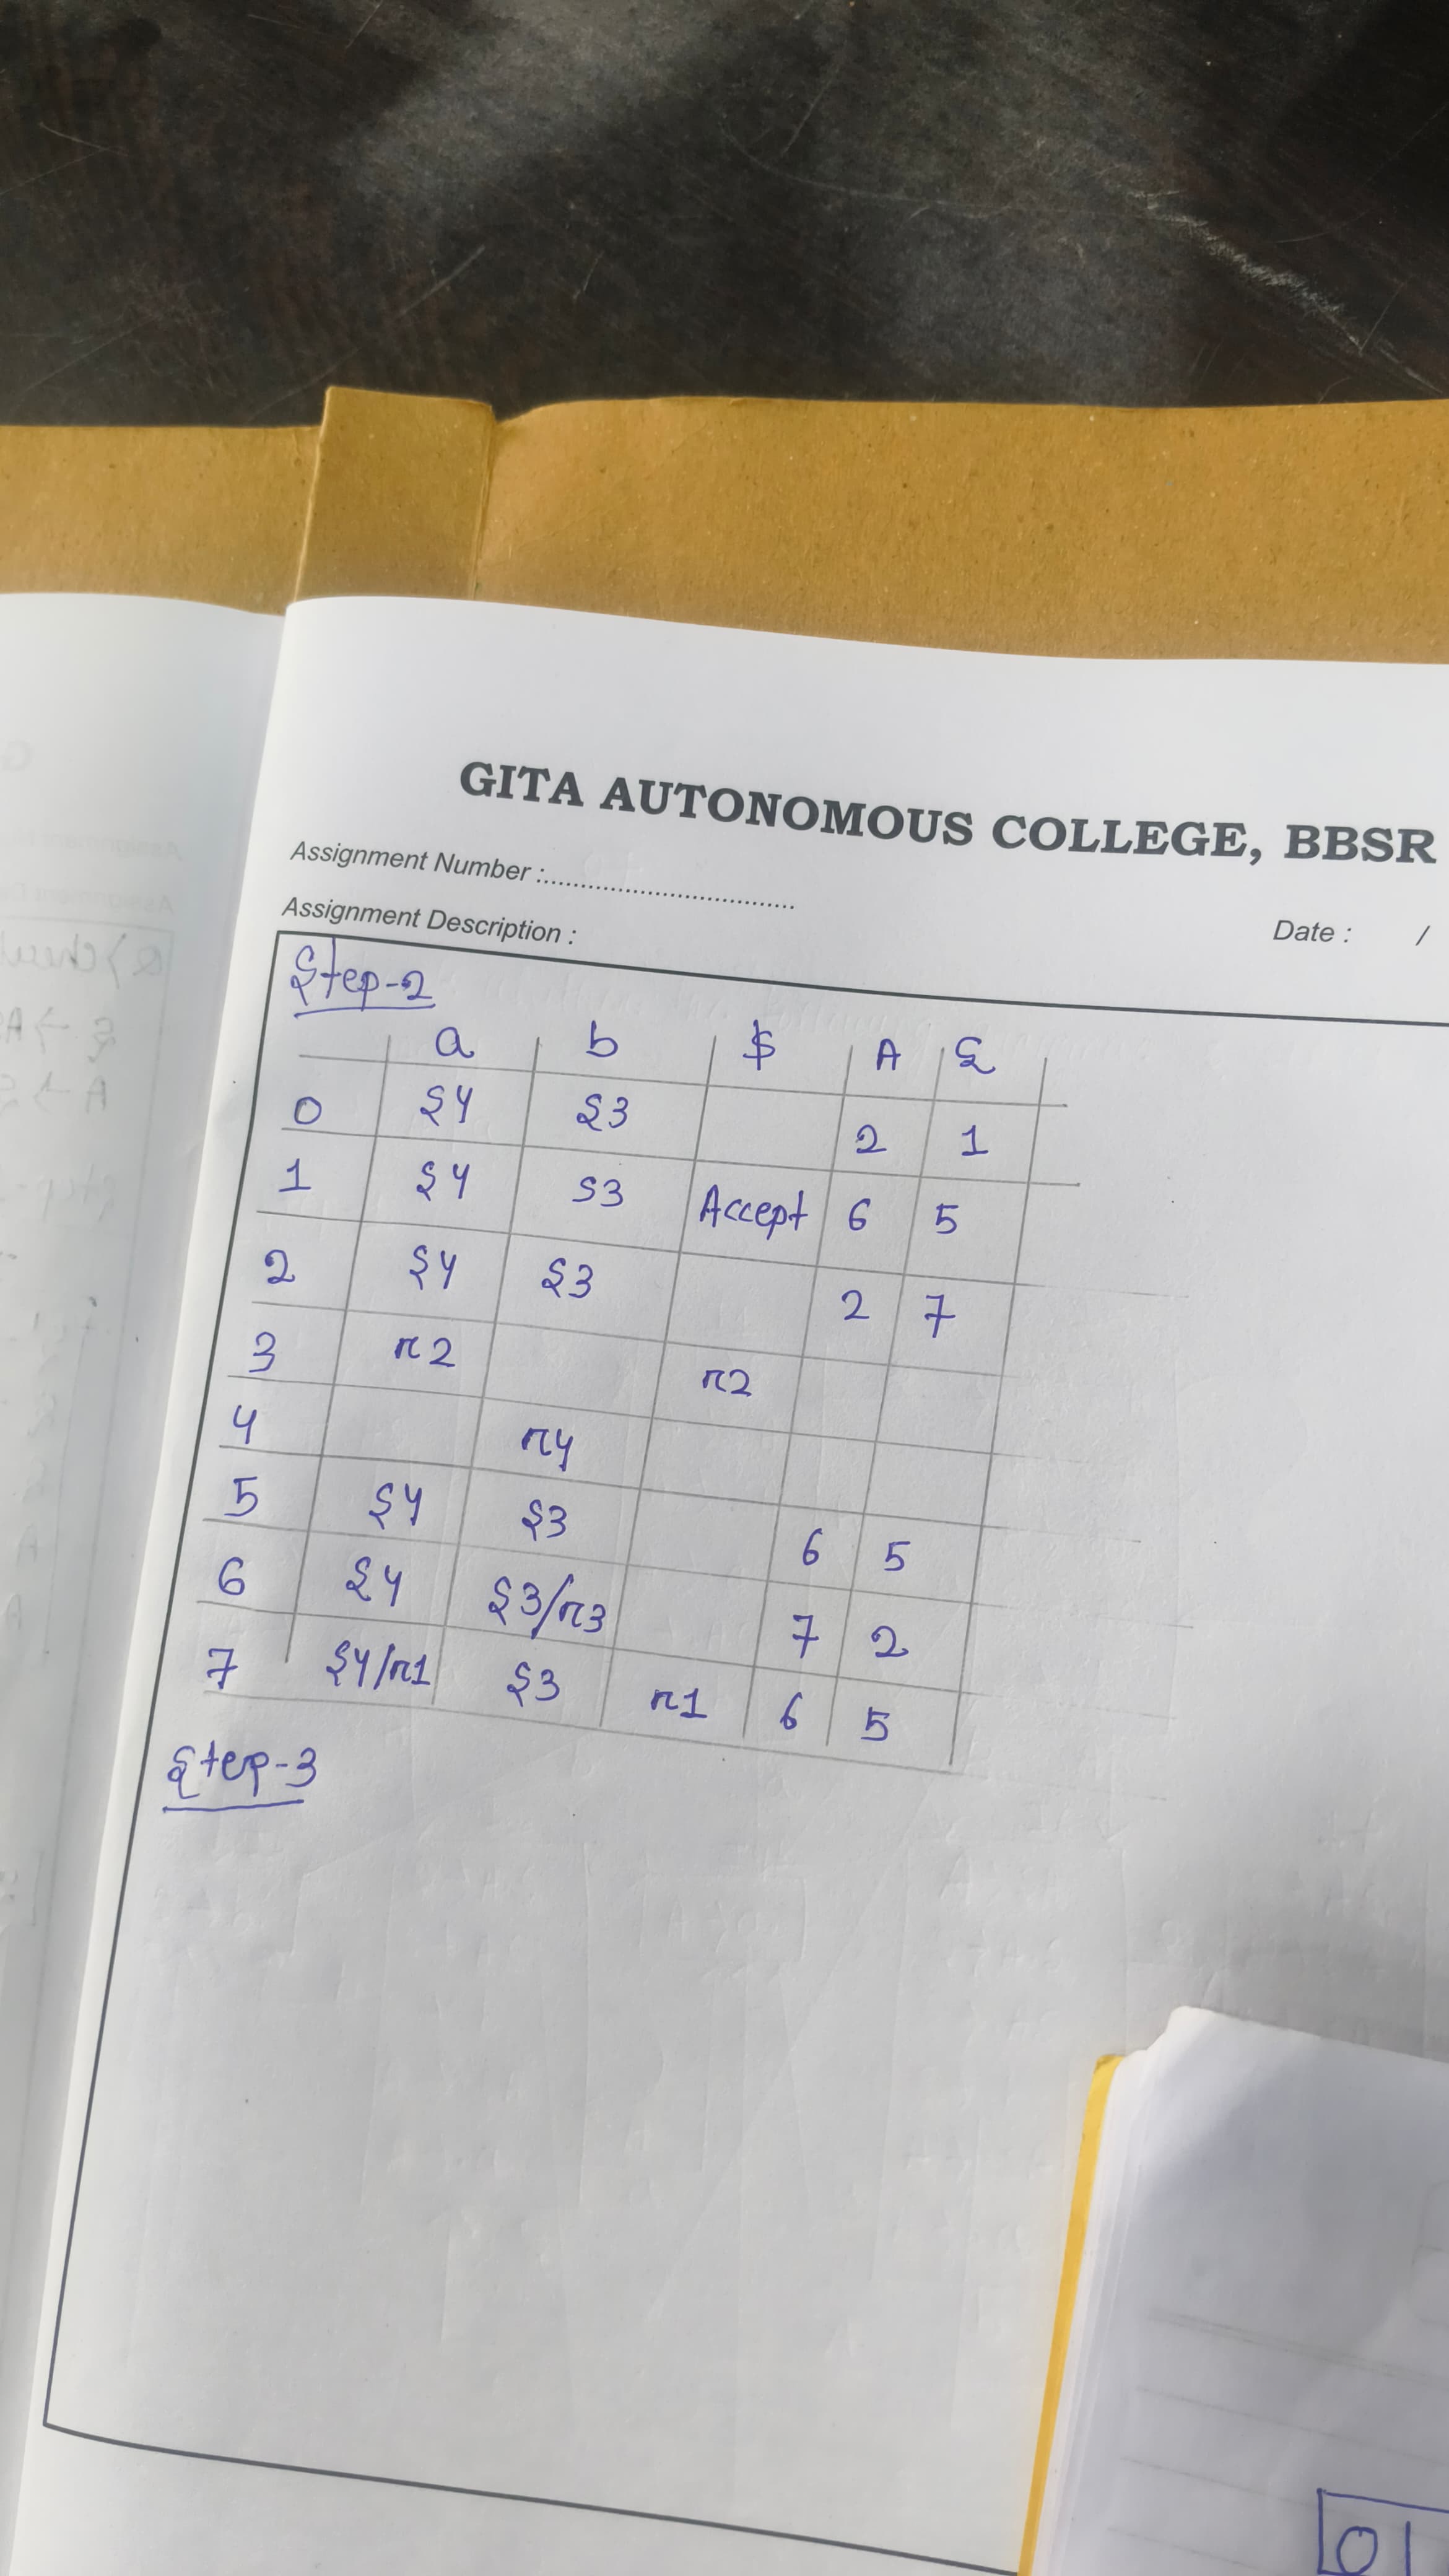 GITA AUTONOMOUS COLLEGE, BBSR
Assignment Number :
Assignment Description :
Date : /
Step-2
a b $ A S
0 S4 S3 2 1
1 S4 S3 Accept 6 5
2 S4 S3 2 7
3 r2 r2
4 r4
5 S4 S3 6 5
6 S4 S3/r3 7 2
7 S4/r1 S3 r1 6 5
Step-3
01